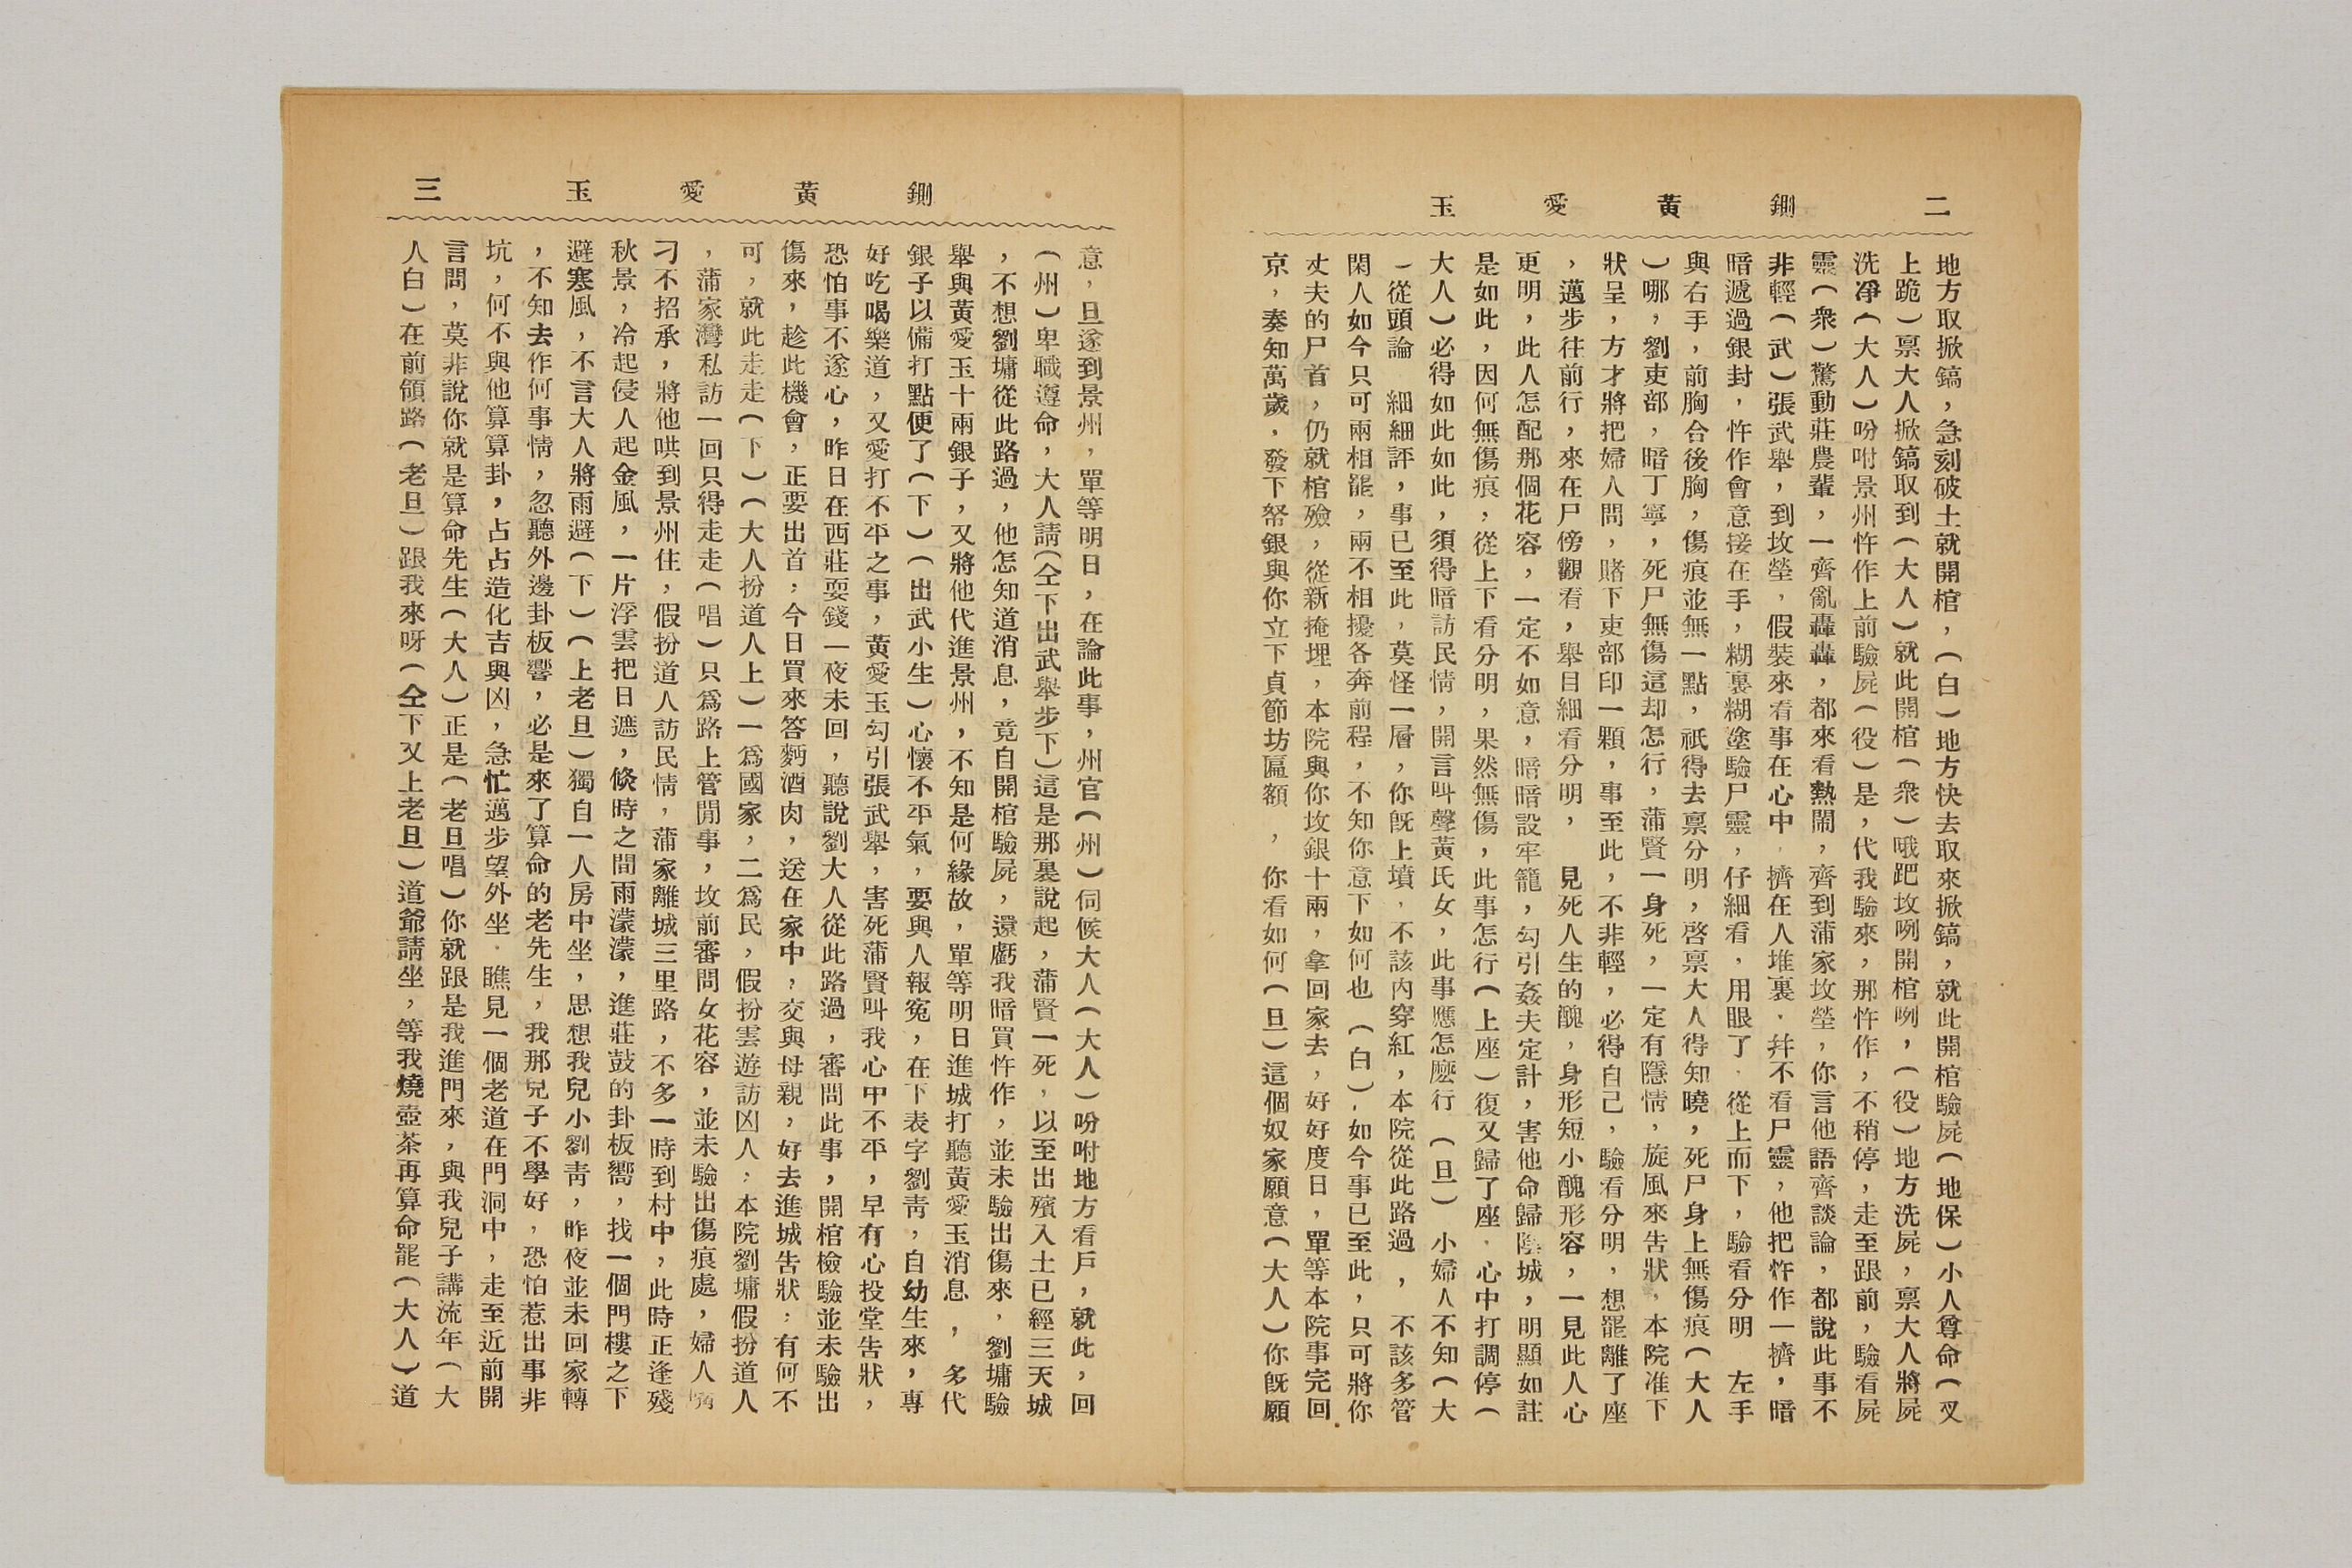 二　鍘黃愛玉
地方取掀鎬，急刻破土就開棺，（白）地方快去取來掀鎬，就此開棺驗屍（地保）小人尊命（叉
上跪）禀大人掀鎬取到（大人）就此開棺（衆）哦跁坟咧開棺咧，（役）地方洗屍，禀大人將屍
洗凈（大人）吩咐景州忤作上前驗屍（役）是，代我驗來，那忤作，不稍停，走至跟前，驗看屍
靈（衆）驚動莊農輩，一齊亂轟轟，都來看熱鬧，齊到蒲家坟塋，你言他語齊談論，都說此事不
非輕（武）張武舉，到坟塋，假裝來看事在心中，擠在人堆裏，幷不看尸靈，他把忤作一擠，暗
暗遞過銀封，忤作會意接在手，糊裏糊塗驗尸靈，仔細看，用眼了，從上而下，驗看分明　左手
與右手，前胸合後胸，傷痕並無一點，祇得去禀分明，啓禀大人得知曉，死尸身上無傷痕（大人
）哪，劉吏部，暗丁寧，死尸無傷這却怎行，蒲賢一身死，一定有隱情，旋風來告狀，本院准下
狀呈，方才將把婦人問，賭下吏部印一顆，事至此，不非輕，必得自己，驗看分明，想罷離了座
，邁步往前行，來在尸傍觀看，舉目細看分明，　見死人生的醜，身形短小醜形容，一見此人心
更明，此人怎配那個花容，一定不如意，暗暗設牢籠，勾引姦夫定計，害他命歸陰城，明顯如註
是如此，因何無傷痕，從上下看分明，果然無傷，此事怎行（上座）復又歸了座，心中打調停（
大人）必得如此如此，須得暗訪民情，開言叫聲黃氏女，此事應怎麽行　（旦）　小婦人不知（大
）從頭論　細細評，事已至此，莫怪一層，你旣上墳，不該內穿紅，本院從此路過　，　不該多管
閑人如今只可兩相罷，兩不相擾各奔前程，不知你意下如何也　（白），如今事已至此，只可將你
丈夫的尸首，仍就棺殮，從新掩埋，本院與你坟銀十兩，拿回家去，好好度日，單等本院事完回
京，奏知萬歲，發下帑銀與你立下貞節坊匾額　，　你看如何（旦）這個奴家願意（大人）你旣願
鍘黃愛玉　三
意，旦遂到景州，單等明日，在論此事，州官（州）伺候大人（大人）吩咐地方看戶，就此，回
（州）卑職遵命，大人請（仝下出武舉步下）這是那裏說起，蒲賢一死，以至出殯入土已經三天城
，不想劉墉從此路過，他怎知道消息，竟自開棺驗屍，還虧我暗買忤作，並未驗出傷來，劉墉驗
舉與黃愛玉十兩銀子，又將他代進景州，不知是何緣故，單等明日進城打聽黃愛玉消息　，　多代
銀子以備打點便了（下）（出武小生）心懷不平氣，要與人報冤，在下表字劉靑，自幼生來，專
好吃喝樂道，又愛打不平之事，黃愛玉勾引張武舉，害死蒲賢叫我心中不平，早有心投堂告狀，
恐怕事不遂心，昨日在西莊耍錢一夜未回，聽說劉大人從此路過，審問此事，開棺檢驗並未驗出
傷來，趁此機會，正要出首；今日買來答麪酒肉，送在家中，交與母親，好去進城告狀；有何不
可，就此走走（下）（大人扮道人上）一爲國家，二爲民，假扮雲遊訪凶人；本院劉墉假扮道人
，蒲家灣私訪一回只得走走（唱）只爲路上管閒事，坟前審問女花容，並未驗出傷痕處，婦人
刁不招承，將他哄到景州住，假扮道人訪民情，蒲家離城三里路，不多一時到村中，此時正逢殘
秋景，冷起侵人起金風，一片浮雲把日遮，倏時之間雨濛濛，進莊鼓的卦板嚮，找一個門樓之下
避寒風，不言大人將雨避（下）（上老旦）獨自一人房中坐，思想我兒小劉靑，昨夜並未回家轉
，不知去作何事情，忽聽外邊卦板響，必是來了算命的老先生，我那兒子不學好，恐怕惹出事非
坑，何不與他算算卦，占占造化吉與凶，急忙邁步望外坐，瞧見一個老道在門洞中，走至近前開
言問，莫非說你就是算命先生（大人）正是（老旦唱）你就跟是我進門來，與我兒子講流年（大
人白）在前領路（老旦）跟我來呀（仝下又上老旦）道爺請坐，等我燒壺茶再算命罷（大人）道